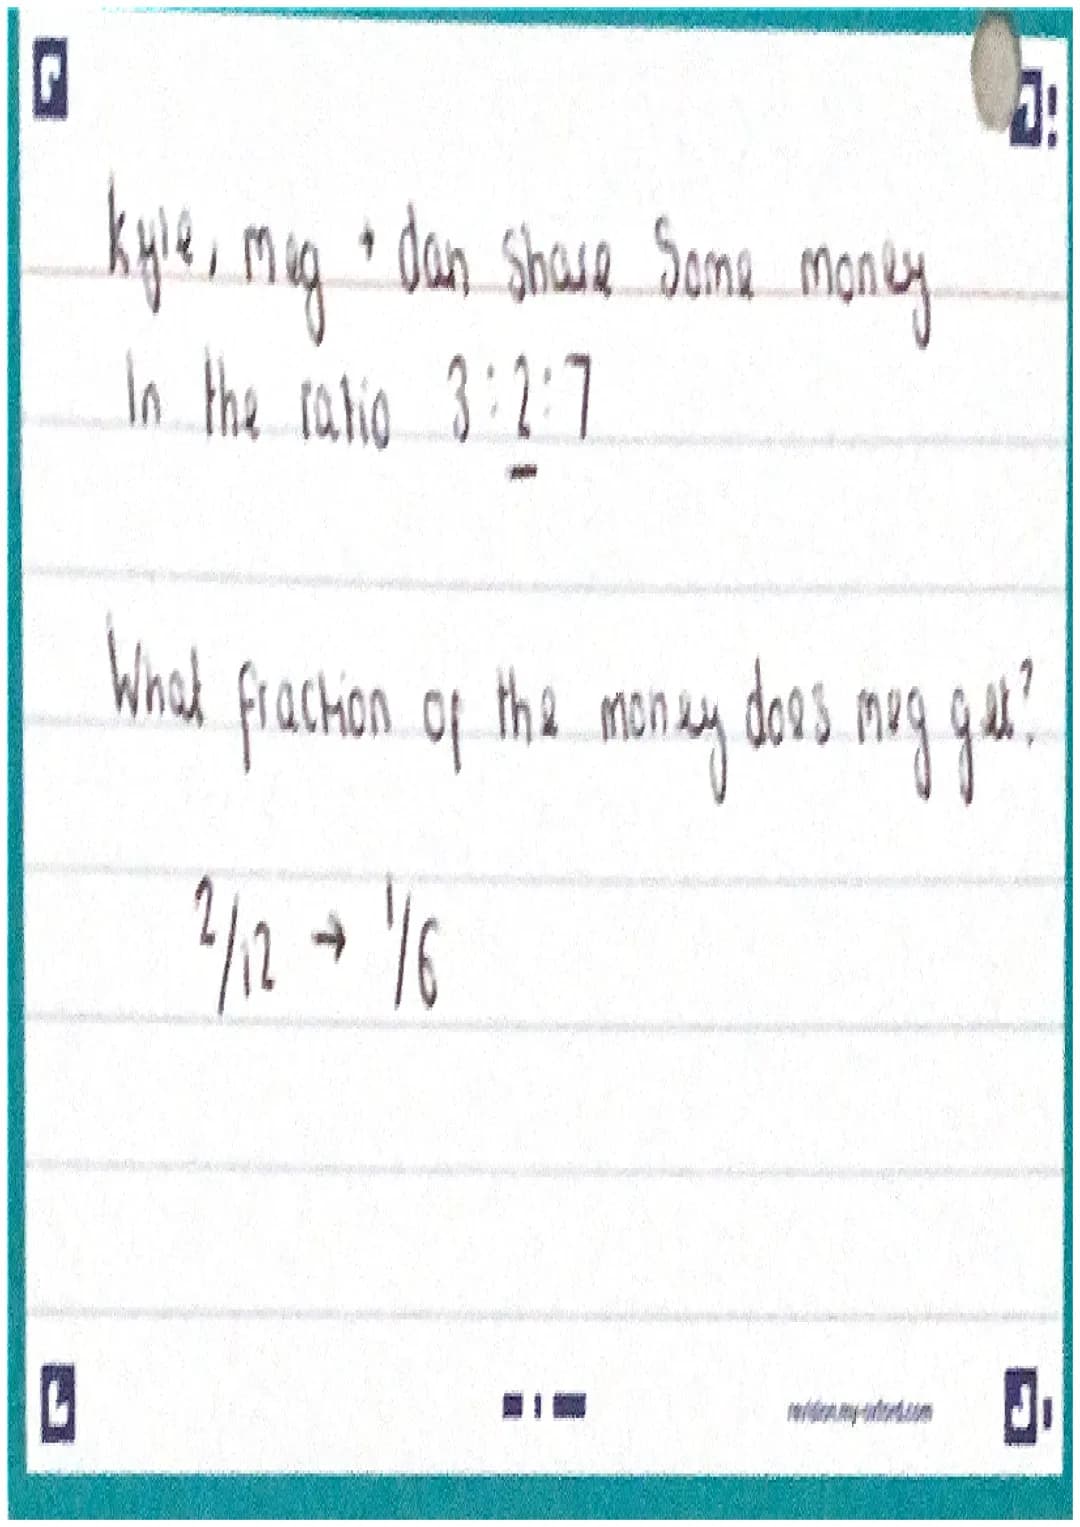 Kyle, Meg + dan share Some money
In the ratio 3:2:7
What fraction of the money does meg get?
2/12 → 1/6